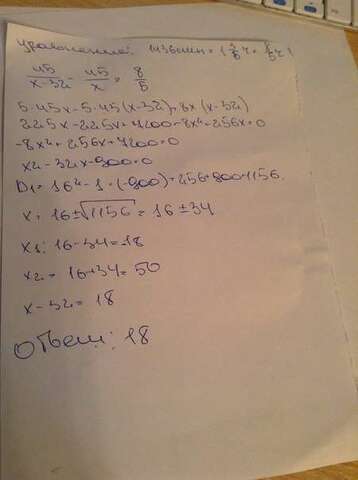 уравнением 1ч36мин = (1 3/5 ч = 8/5 ч)
45/x-32 - 45/x = 8/5
5·45x-5·45(x-32)=8x(x-32)
225x-225x+7200-8x²+256x=0
-8x²+256x+7200=0
x²-32x-900=0
D1=16²-1·(-900)=256+900=1156.
x=16±√1156=16±34
x1=16-34=-18
x2=16+34=50
x-32=18
Ответ: 18